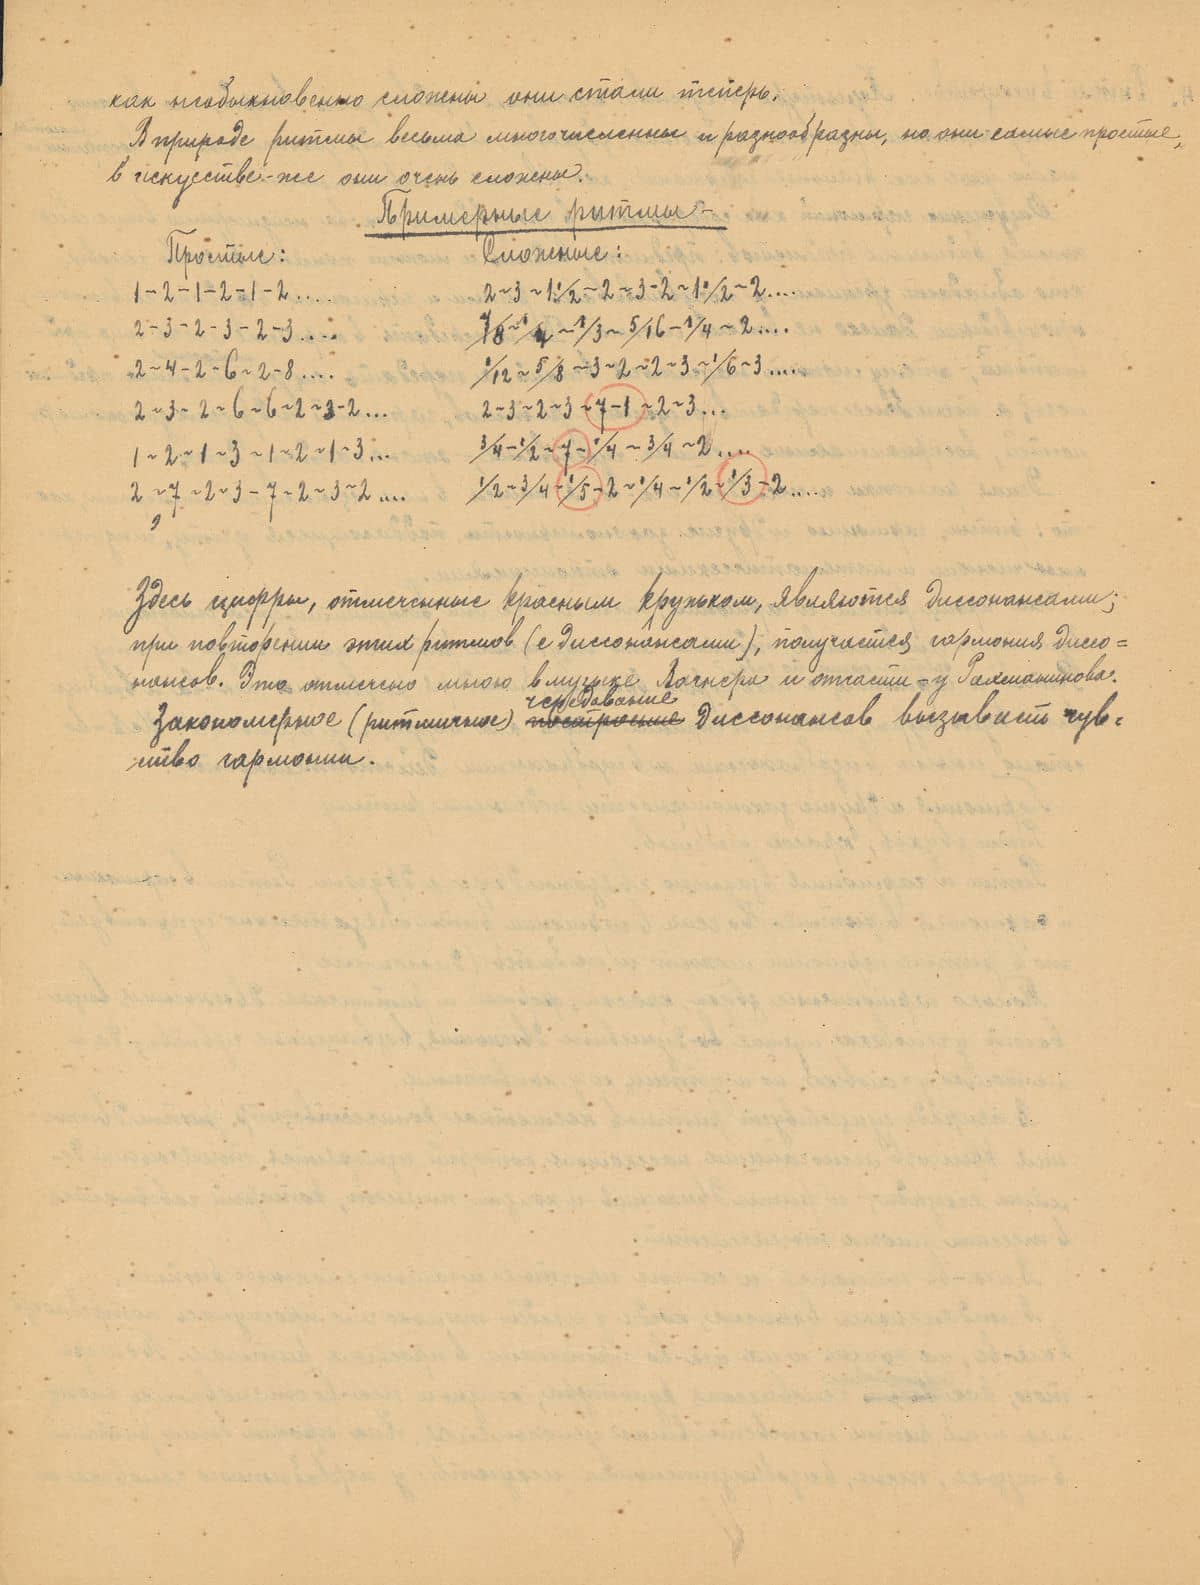 как необыкновенно сложены они стали теперь.
В природе ритмы весьма многочисленны и разнообразны, но они самые простые,
в искусстве-же они очень сложены.
Примерные ритмы-
Простые:
Сложные:
1-2-1-2-1-2....
2-3-1 1/2-2-3-2-1 1/2-2....
2-3-2-3-2-3.....
1/8-1/4-1/3-5/16-1/4-2....
2-4-2-6-2-8....
1/12-5/8-3-2-2-3-1/6-3....
2-3-2-6-6-2-3-2...
2-3-2-3-7-1-2-3...
1-2-1-3-1-2-1-3...
3/4-1/2-7-1/4-3/4-2....
2-7-2-3-7-2-3-2....
1/2-3/4-1/5-2-1/4-1/2-1/3-2....
Здесь цифры, отмеченные красным кружком, являются диссонансами;
при повторении этих ритмов (с диссонансами), получается гармония диссо=
нансов. Это отмечено мною в музыке Вагнера и отчасти-у Рахманинова.
чередование
Закономерное (ритмичное) построение диссонансов вызывает чув-
ство гармонии.